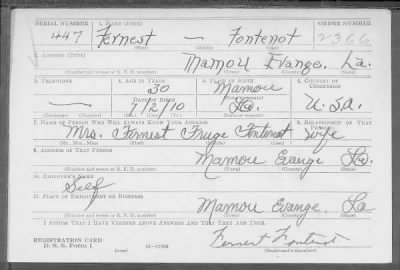 SERIAL NUMBER 1. NAME (Print) ORDER NUMBER
447 Fernest — Fontenot 2366
(First) (Middle) (Last)
2. ADDRESS (Print)
Mamou Evange. La.
(Number and street or R. F. D. number) (Town) (County) (State)
3. TELEPHONE 4. AGE IN YEARS 5. PLACE OF BIRTH 6. COUNTRY OF CITIZENSHIP
30 Mamou
DATE OF BIRTH
— 7/2/10 La. U.S.A.
(Exchange) (No.) (Mo.) (Day) (Yr.) (State or country)
7. NAME OF PERSON WHO WILL ALWAYS KNOW YOUR ADDRESS 8. RELATIONSHIP OF THAT PERSON
Mrs. Fernest Fruge Fontenot wife
(Mr., Mrs., Miss) (First) (Middle) (Last)
9. ADDRESS OF THAT PERSON
Mamou Evange La.
(Number and street or R. F. D. number) (Town) (County) (State)
10. EMPLOYER'S NAME
Self
11. PLACE OF EMPLOYMENT OR BUSINESS
Mamou Evange. La
(Number and street or R. F. D. number) (Town) (County) (State)
I AFFIRM THAT I HAVE VERIFIED ABOVE ANSWERS AND THAT THEY ARE TRUE.
REGISTRATION CARD
D. S. S. Form 1 (over) 16—17105 Fernest Fontenot
(Registrant's signature)